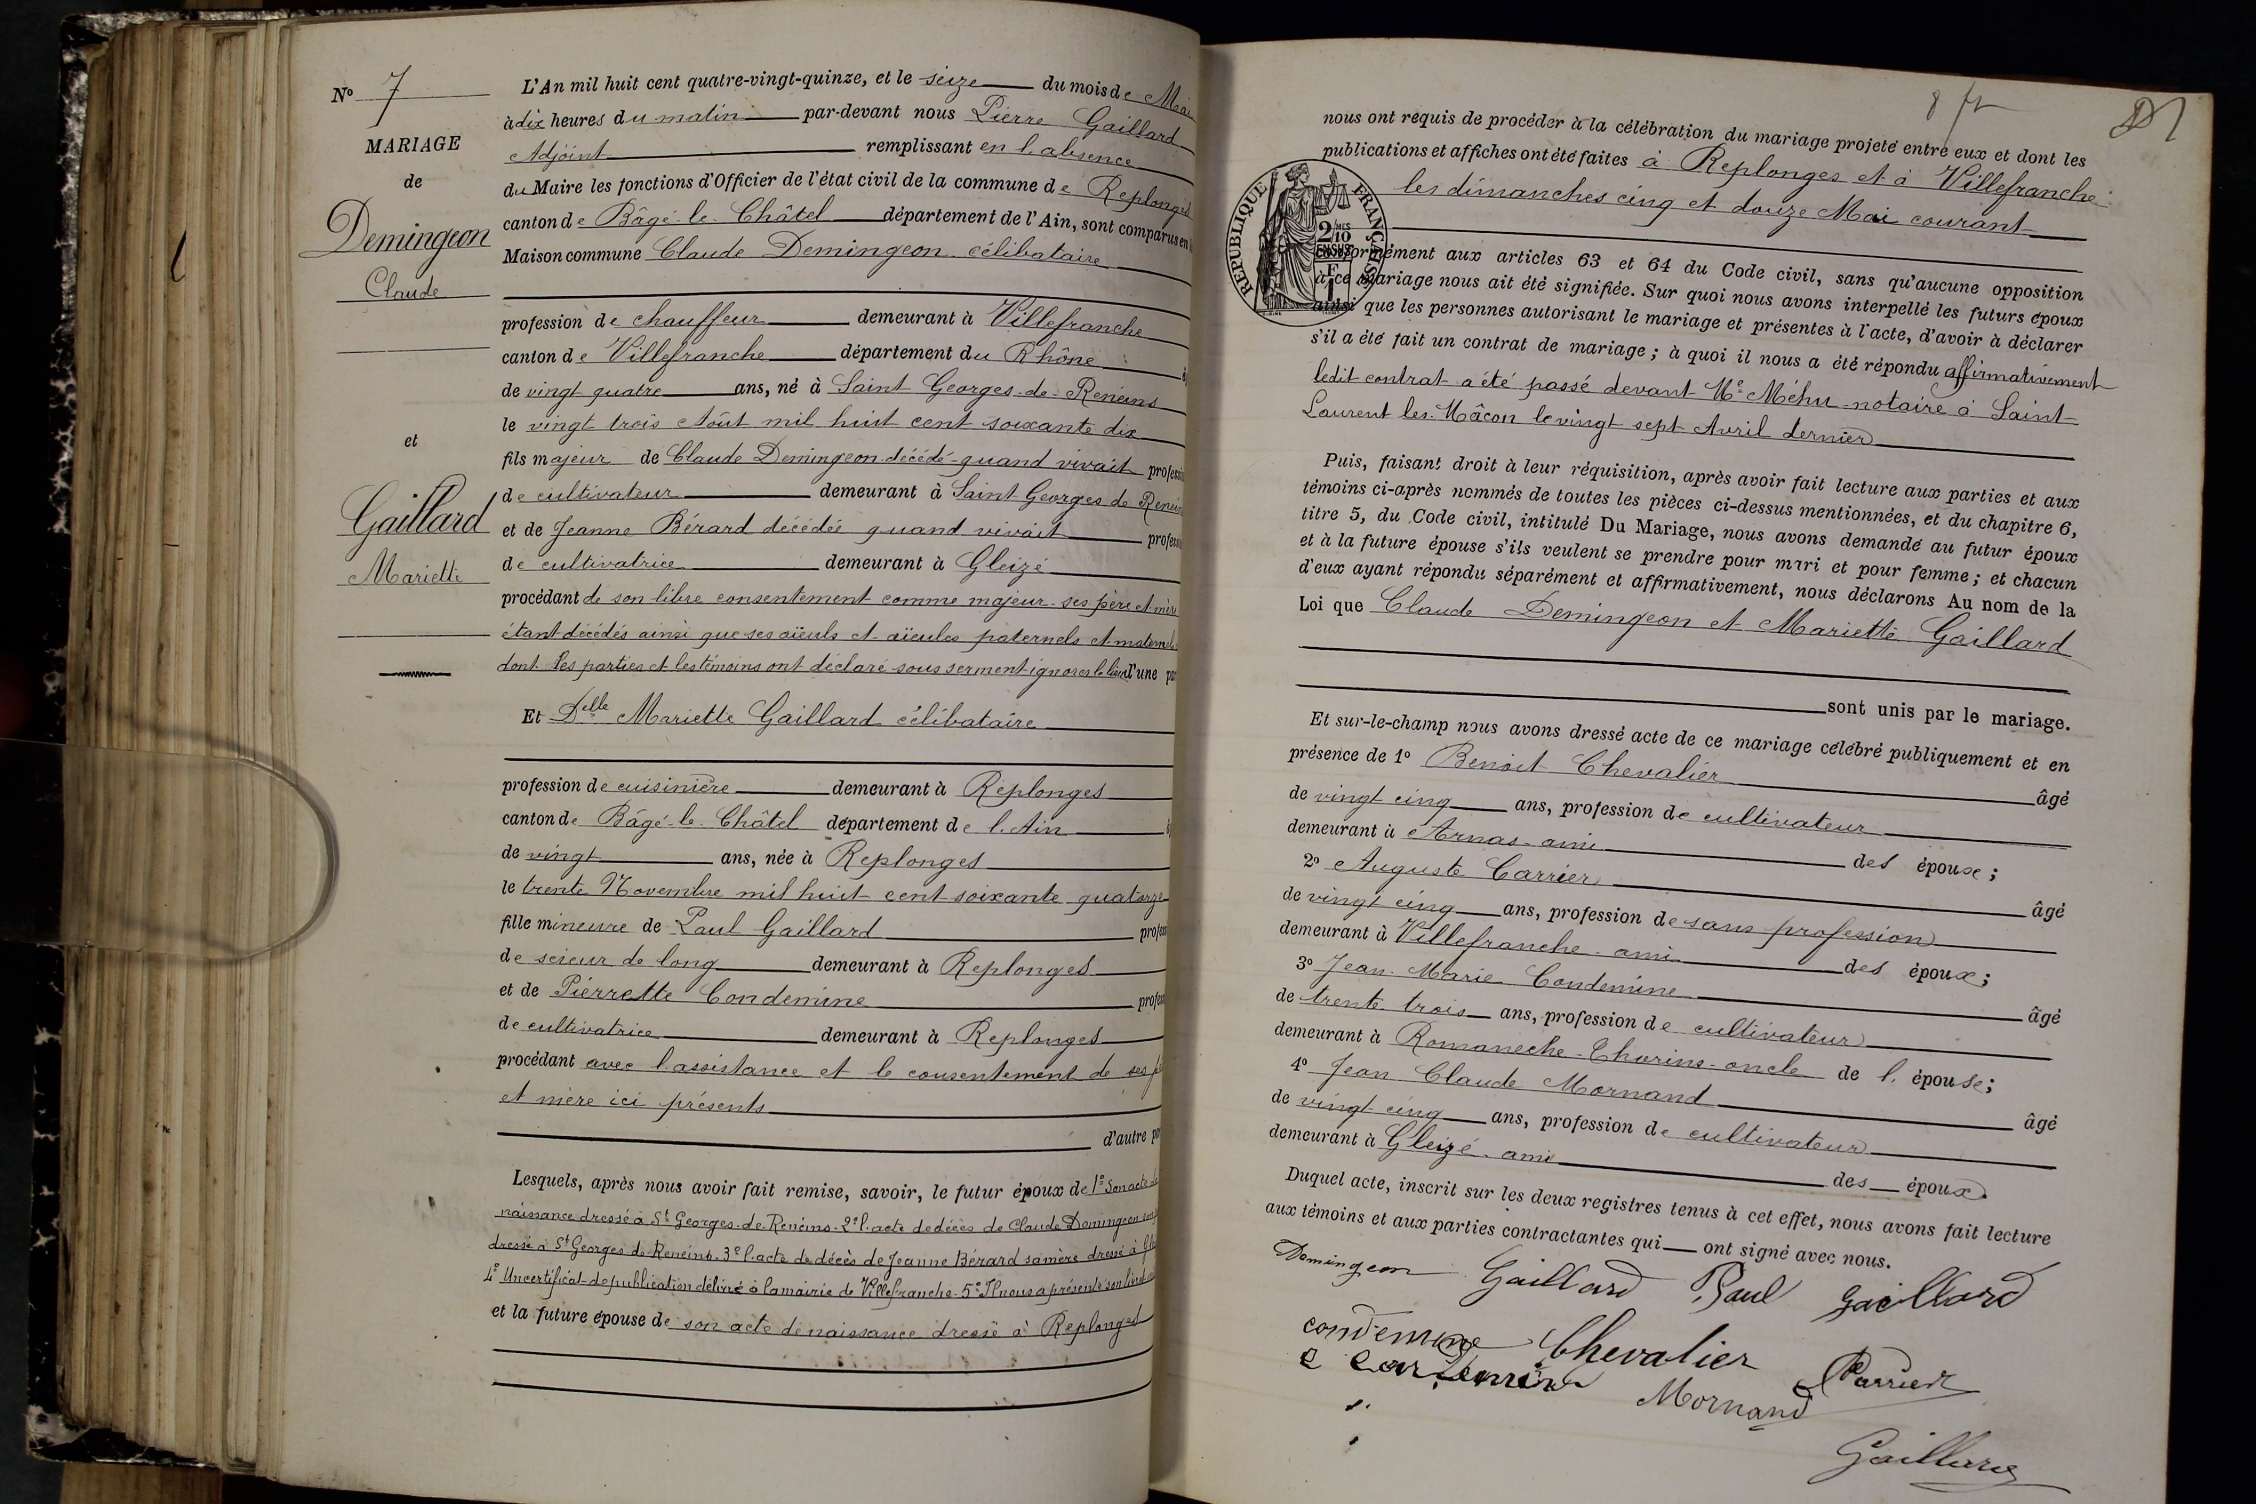 N° 7
MARIAGE
de
Demingeon
Claude
et
Gaillard
Mariette
L'An mil huit cent quatre-vingt-quinze, et le seize du mois de Mai
à dix heures du matin par-devant nous Pierre Gaillard
Adjoint remplissant en l'absence
du Maire les fonctions d'Officier de l'état civil de la commune de Replonges
canton de Bâgé-le-Châtel département de l'Ain, sont comparus en
Maison commune Claude Demingeon célibataire
profession de chauffeur demeurant à Villefranche
canton de Villefranche département du Rhône
de vingt quatre ans, né à Saint Georges-de-Reneins
le vingt trois Août mil huit cent soixante dix
fils majeur de Claude Demingeon décédé quand vivait
de cultivateur demeurant à Saint Georges de Reneins
et de Jeanne Bérard décédée quand vivait
de cultivatrice demeurant à Gleizé
procédant de son libre consentement comme majeur ses père et mère
étant décédés ainsi que ses aïeuls et aïeules paternels et maternels
dont les parties et les témoins ont déclaré sous serment ignorer le lieu d'une
Et Delle Mariette Gaillard célibataire
profession de cuisinière demeurant à Replonges
canton de Bâgé-le-Châtel département de l'Ain
de vingt ans, née à Replonges
le trente Novembre mil huit cent soixante quatorze
fille mineure de Paul Gaillard
de scieur de long demeurant à Replonges
et de Pierrette Condemine
de cultivatrice demeurant à Replonges
procédant avec l'assistance et le consentement de ses
et mère ici présents
d'autre
Lesquels, après nous avoir fait remise, savoir, le futur époux de 1° Son acte de
naissance dressé à St Georges-de-Reneins 2° l'acte de décès de Claude Demingeon
dressé à St Georges de Reneins 3° l'acte de décès de Jeanne Bérard sa mère dressé à
4° Un certificat de publication délivré à la mairie de Villefranche 5° Il nous a présenté son
et la future épouse de son acte de naissance dressé à Replonges
nous ont requis de procéder à la célébration du mariage projeté entre eux et dont les
publications et affiches ont été faites à Replonges et à Villefranche
les dimanches cinq et douze Mai courant
RÉPUBLIQUE FRANÇAISE
2/10 EN SUS
conformément aux articles 63 et 64 du Code civil, sans qu'aucune opposition
à ce mariage nous ait été signifiée. Sur quoi nous avons interpellé les futurs époux
ainsi que les personnes autorisant le mariage et présentes à l'acte, d'avoir à déclarer
s'il a été fait un contrat de mariage; à quoi il nous a été répondu affirmativement
ledit contrat a été passé devant Me Méhu notaire à Saint
Laurent les Mâcon le vingt sept Avril dernier
Puis, faisant droit à leur réquisition, après avoir fait lecture aux parties et aux
témoins ci-après nommés de toutes les pièces ci-dessus mentionnées, et du chapitre 6,
titre 5, du Code civil, intitulé Du Mariage, nous avons demandé au futur époux
et à la future épouse s'ils veulent se prendre pour mari et pour femme; et chacun
d'eux ayant répondu séparément et affirmativement, nous déclarons Au nom de la
Loi que Claude Demingeon et Mariette Gaillard
sont unis par le mariage.
Et sur-le-champ nous avons dressé acte de ce mariage célébré publiquement et en
présence de 1° Benoit Chevalier âgé
de vingt cinq ans, profession de cultivateur
demeurant à Arnas ami des époux;
2° Auguste Carrier âgé
de vingt cinq ans, profession de sans profession
demeurant à Villefranche ami des époux;
3° Jean Marie Condemine âgé
de trente trois ans, profession de cultivateur
demeurant à Romanèche-Thorins oncle de l' épouse;
4° Jean Claude Mornand âgé
de vingt cinq ans, profession de cultivateur
demeurant à Gleizé ami des époux.
Duquel acte, inscrit sur les deux registres tenus à cet effet, nous avons fait lecture
aux témoins et aux parties contractantes qui ont signé avec nous.
Demingeon Gaillard Paul Gaillard
condemine Chevalier Carrier
Mornand
Gaillard